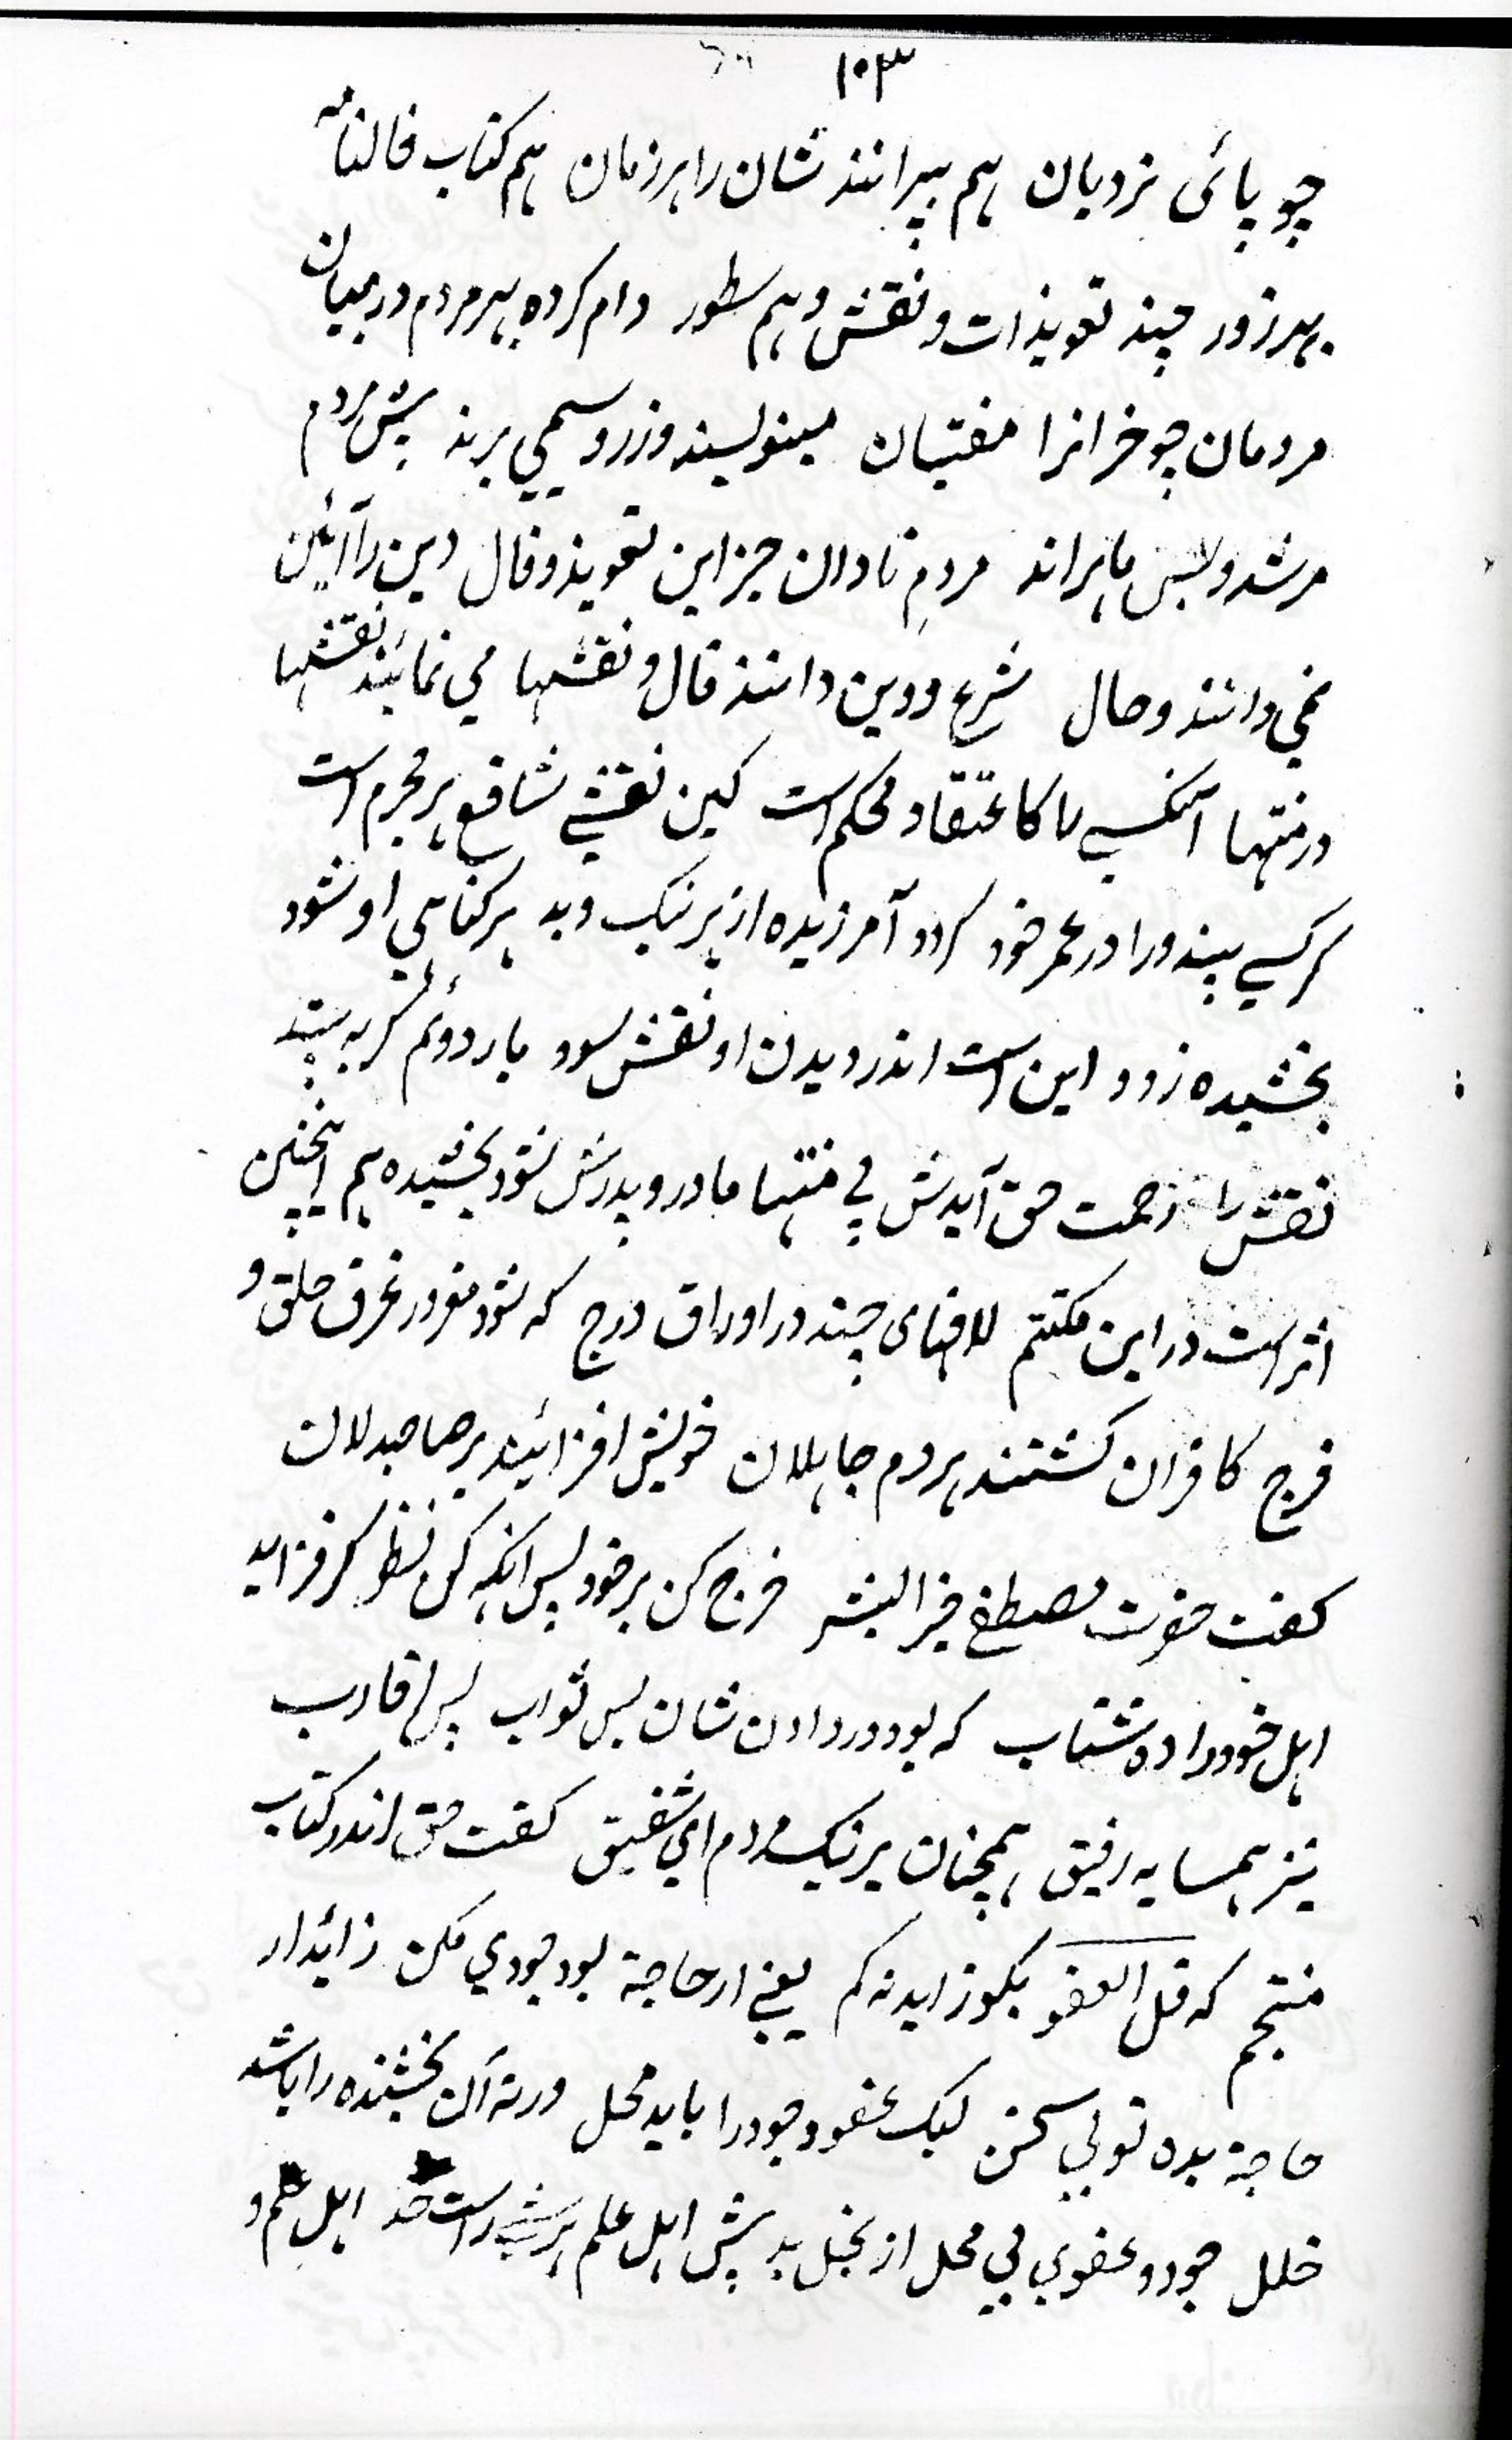 ۱۰۳
چو پائی نردبان هم بپرانند شان را هر زمان هم کتاب فالنامه
بهر زور چند تعویذات و نقش و هم سطور دام کرده بهر مردم درمیان
مردمان چو خرانرا مفتیان مینویسند وزر و سیمی برند پیش مردم
مرشد و بس ماهراند مردمِ نادان جز این تعویذ و فال دین را آئین
نمی دانند و حال شرع و دین دانند فال و نقشها می نمائیند نقشها
در منتها آنکسی را کاعتقاد محکم است کین نقشی شافع هر مجرم است
گر کسی بیند ورا در عمر خود گردد آمرزیده از هر نیک و بد هر گناهی او شود
بخشیده زود این است اندر دیدن او نقش سود بار دوئم گر به بیند
نقش را رحمت حق آیدش پی منتها مادر و پدرش شود بخشیده هم اینچنین
اثر است در این مکتتم لافهای چند در اوراق درج که شود مغرور غرق حلق و
فرج کافران گشتند هردم جاهلان خویش افزائیند بر صاحبدلان
گفت حضرت مصطفی خیر البشر خرج کن بر خود پس آنگه کن نظر گر فزاید
اهل خود را ده شتاب که بود در دادن شان بس ثواب پس اقارب
نیز همسایه رفیق همچنان بر نیک مردم ای شفیق گفت حق اندر کتاب
منتجم که قل العفو بگو زاید نه کم یعنی ار حاجة بود جودی مکن زائد ار
حاجة بده تو بی سخن لیک عفو و جود را باید محل ورنه آن بخشنده را باشد
خلل جود و عفوی بی محل از بخل بد پیش اهل علم هر شی راست حد اهل علم و